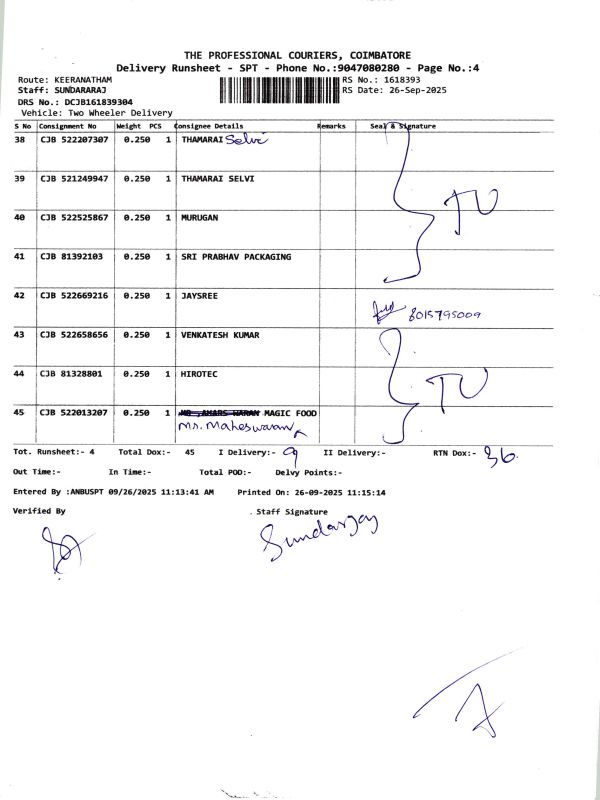 THE PROFESSIONAL COURIERS, COIMBATORE
Delivery Runsheet - SPT - Phone No.:9047080280 - Page No.:4
Route: KEERANATHAM RS No.: 1618393
Staff: SUNDARARAJ RS Date: 26-Sep-2025
DRS No.: DCJB161839304
Vehicle: Two Wheeler Delivery
S No Consignment No Weight PCS Consignee Details Remarks Seal & Signature
38 CJB 522207307 0.250 1 THAMARAI Selvi
39 CJB 521249947 0.250 1 THAMARAI SELVI
TU
40 CJB 522525867 0.250 1 MURUGAN
41 CJB 81392103 0.250 1 SRI PRABHAV PACKAGING
42 CJB 522669216 0.250 1 JAYSREE
8015795009
43 CJB 522658656 0.250 1 VENKATESH KUMAR
44 CJB 81328801 0.250 1 HIROTEC
TU
45 CJB 522013207 0.250 1 MAGIC FOOD
Mr. Maheswaran
Tot. Runsheet:- 4 Total Dox:- 45 I Delivery:- 9 II Delivery:- RTN Dox:- 36
Out Time:- In Time:- Total POD:- Delvy Points:-
Entered By :ANBUSPT 09/26/2025 11:13:41 AM Printed On: 26-09-2025 11:15:14
Verified By . Staff Signature
Sundarraj